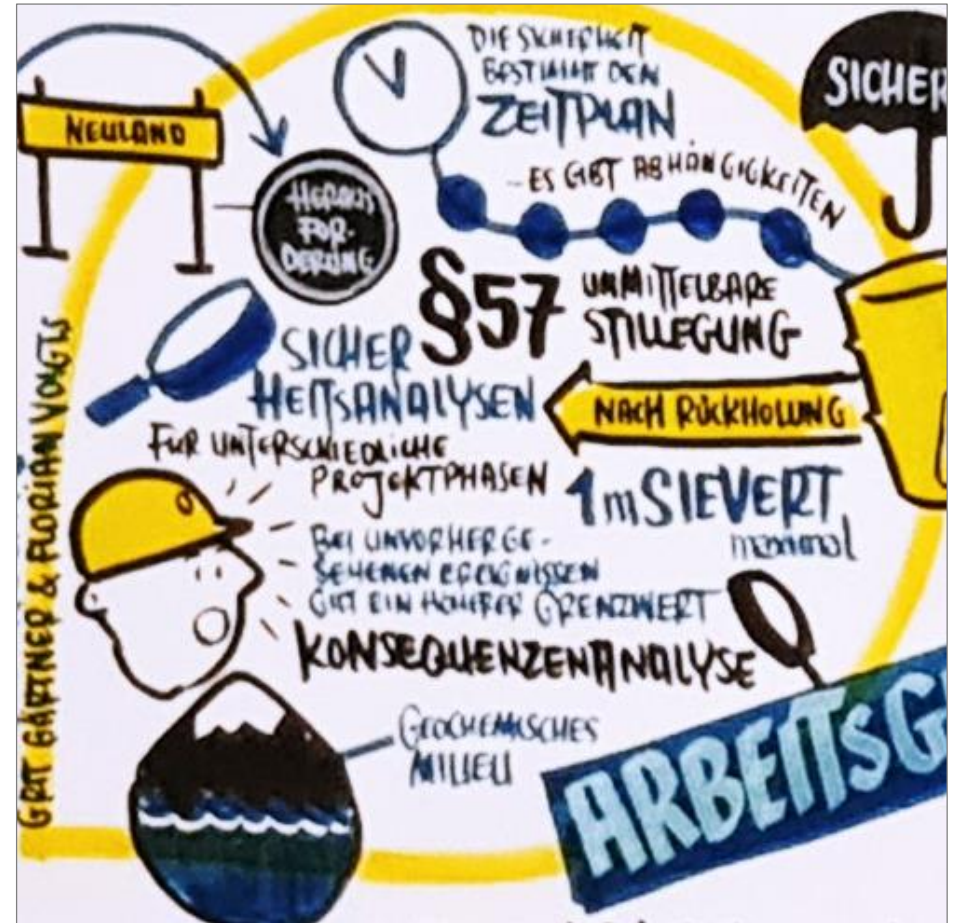 NEULAND
HERAUS
FOR-
DERUNG
DIE SICHERHEIT
BESTIMMT DEN
ZEITPLAN
...ES GIBT ABHÄNGIGKEITEN
SICHER
§57 UNMITTELBARE
STILLEGUNG
NACH RÜCKHOLUNG
SICHER
HEITSANALYSEN
FÜR UNTERSCHIEDLICHE
PROJEKTPHASEN
1mSIEVERT
maximal
BEI UNVORHERGE-
SEHENEN EREIGNISSEN
GILT EIN HÖHERER GRENZWERT
KONSEQUENZENANALYSE
GEOCHEMISCHES
MILIEU
ARBEITSG
GRIT GÄRTNER & FLORIAN VOIGTS